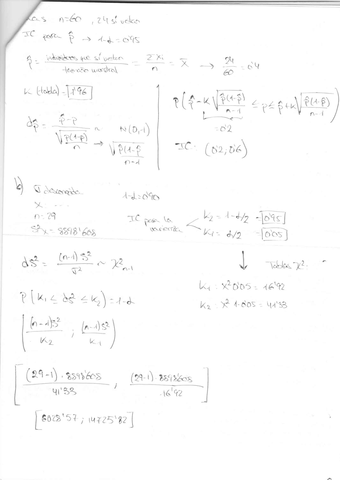 n=60, 24 sí velan
IC para p̂ → 1-α=0'95
p̂ = individuos que sí velan / tamaño muestral = Σxi / n = x̄ → 24/60 = 0'4
K (tabla) = 1'96
dp̂ = (p̂-p) / √(p̂(1-p̂)/n) ≈ N(0,1) → √(p̂(1-p̂)/(n-1))
P( p̂-K√(p̂(1-p̂)/(n-1)) ≤ p ≤ p̂+K√(p̂(1-p̂)/(n-1)) )
0'2
IC = (0'2, 0'6)
b)
1-α=0'90
n=29
S²x = 8898'608
IC para la varianza
K2 = 1-α/2 = 0'95
K1 = α/2 = 0'05
dS² = (n-1)S² / σ² ~ X²n-1
Tablas X²
P( K1 ≤ dS² ≤ K2 ) = 1-α
K1 = X² 0'05 = 16'92
K2 = X² 1-0'05 = 41'33
( (n-1)S² / K2 ; (n-1)S² / K1 )
[ (29-1)·8898'608 / 41'33 , (29-1)·8898'608 / 16'92 ]
[ 6028'57 ; 14725'82 ]